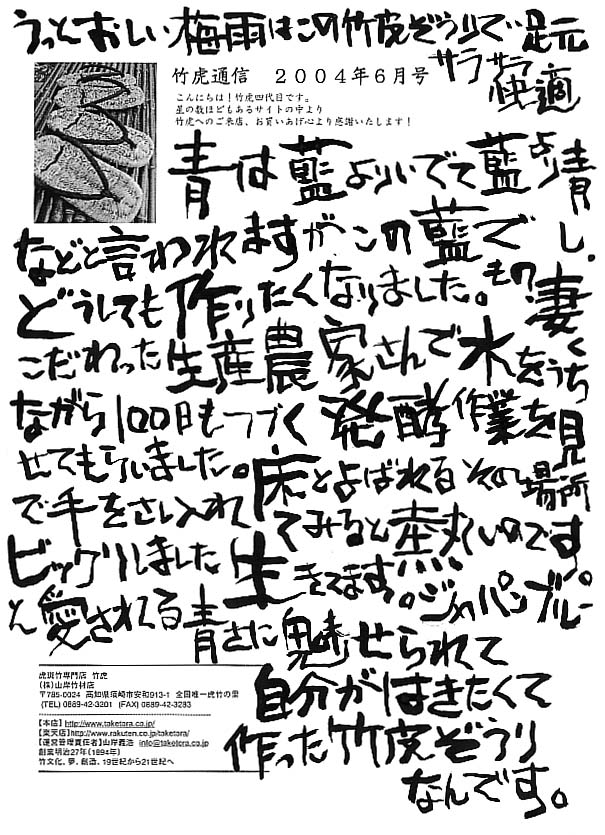 うっとおしい梅雨はこの竹皮ぞうりで足元
サラサラ快適
竹虎通信 2004年6月号
こんにちは！竹虎四代目です。
星の数ほどもあるサイトの中より
竹虎へのご来店、お買いあげ心より感謝いたします！
青は藍よりいでて藍より青し、
などと言われますがこの藍で
どうしても作りたくなりました。もの凄く
こだわった生産農家さんで水をうち
ながら100日もつづく発酵作業を見
せてもらいました。床とよばれるその場所
で手をさし入れてみると熱いのです。
ビックリしました生きてます。ジャパンブルー
と愛されてる青さに魅せられて
自分がはきたくて
作った竹皮ぞうり
なんです。
虎斑竹専門店 竹虎
(株)山岸竹材店
〒785-0024 高知県須崎市安和913-1 全国唯一虎竹の里
(TEL) 0889-42-3201 (FAX) 0889-42-3283
【本店】http://www.taketora.co.jp/
【楽天店】http://www.rakuten.co.jp/taketora/
【運営管理責任者】山岸義浩 info@taketora.co.jp
創業明治27年(1894年)
竹文化、夢、創造、19世紀から21世紀へ